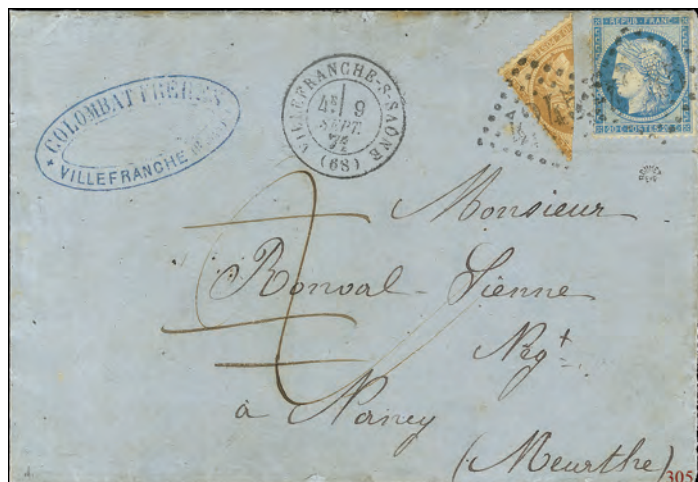 COLOMBAT FRERES
VILLEFRANCHE
VILLEFRANCHE-S-SAÔNE
4E 9
SEPT.
71
(68)
REPUB. FRANC.
POSTES
Monsieur
Bonval-Sienne
Ngt
à Nancy
(Meurthe)
305